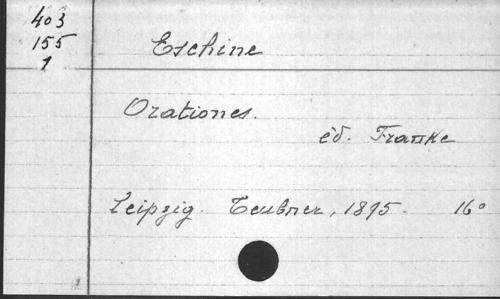 403
155
1
Eschine
Orationes.
éd. Franke
Leipzig. Teubner, 1895. 16°